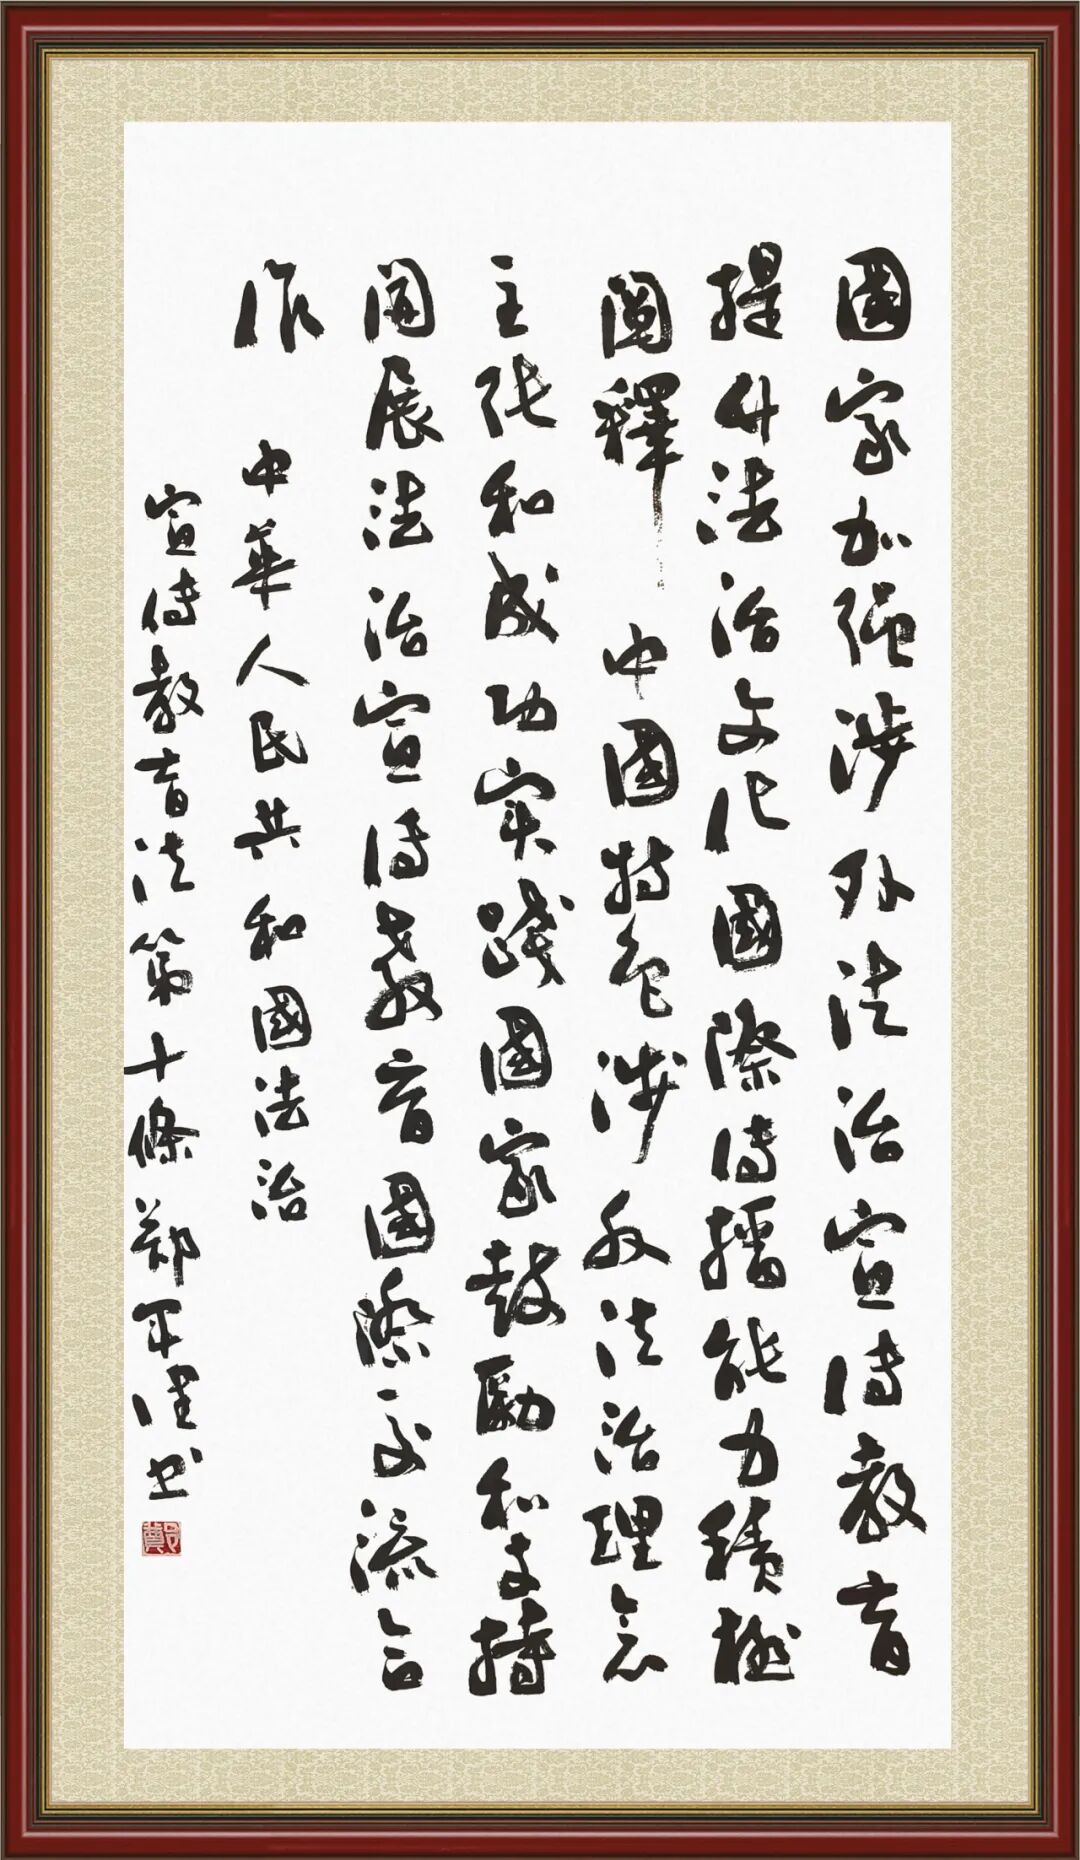 國家加强涉外法治宣傳教育
提升法治文化國際傳播能力積極
闡釋中國特色涉外法治理念
主張和成功实踐國家鼓勵和支持
開展法治宣傳教育國際交流合
作 中華人民共和國法治
宣傳教育法第十條 鄭書